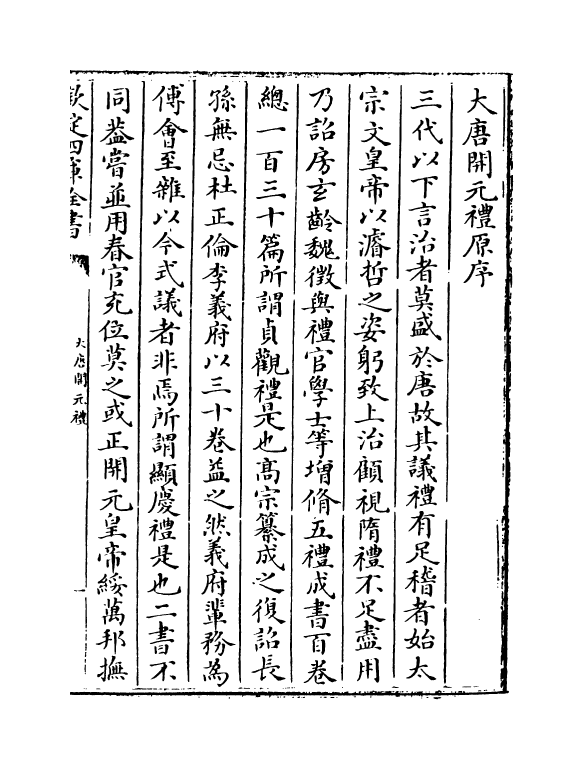 大唐開元禮原序
三代以下言治者莫盛於唐故其議禮有足稽者始太
宗文皇帝以濬哲之姿躬致上治顧視隋禮不足盡用
乃詔房玄齡魏徵與禮官學士等增脩五禮成書百卷
總一百三十篇所謂貞觀禮是也髙宗纂成之復詔長
孫無忌杜正倫李義府以三十卷益之然義府輩務為
傅會至雜以今式議者非焉所謂顯慶禮是也二書不
同葢嘗並用春官充位莫之或正開元皇帝綏萬邦撫
欽定四庫全書
大唐開元禮
一